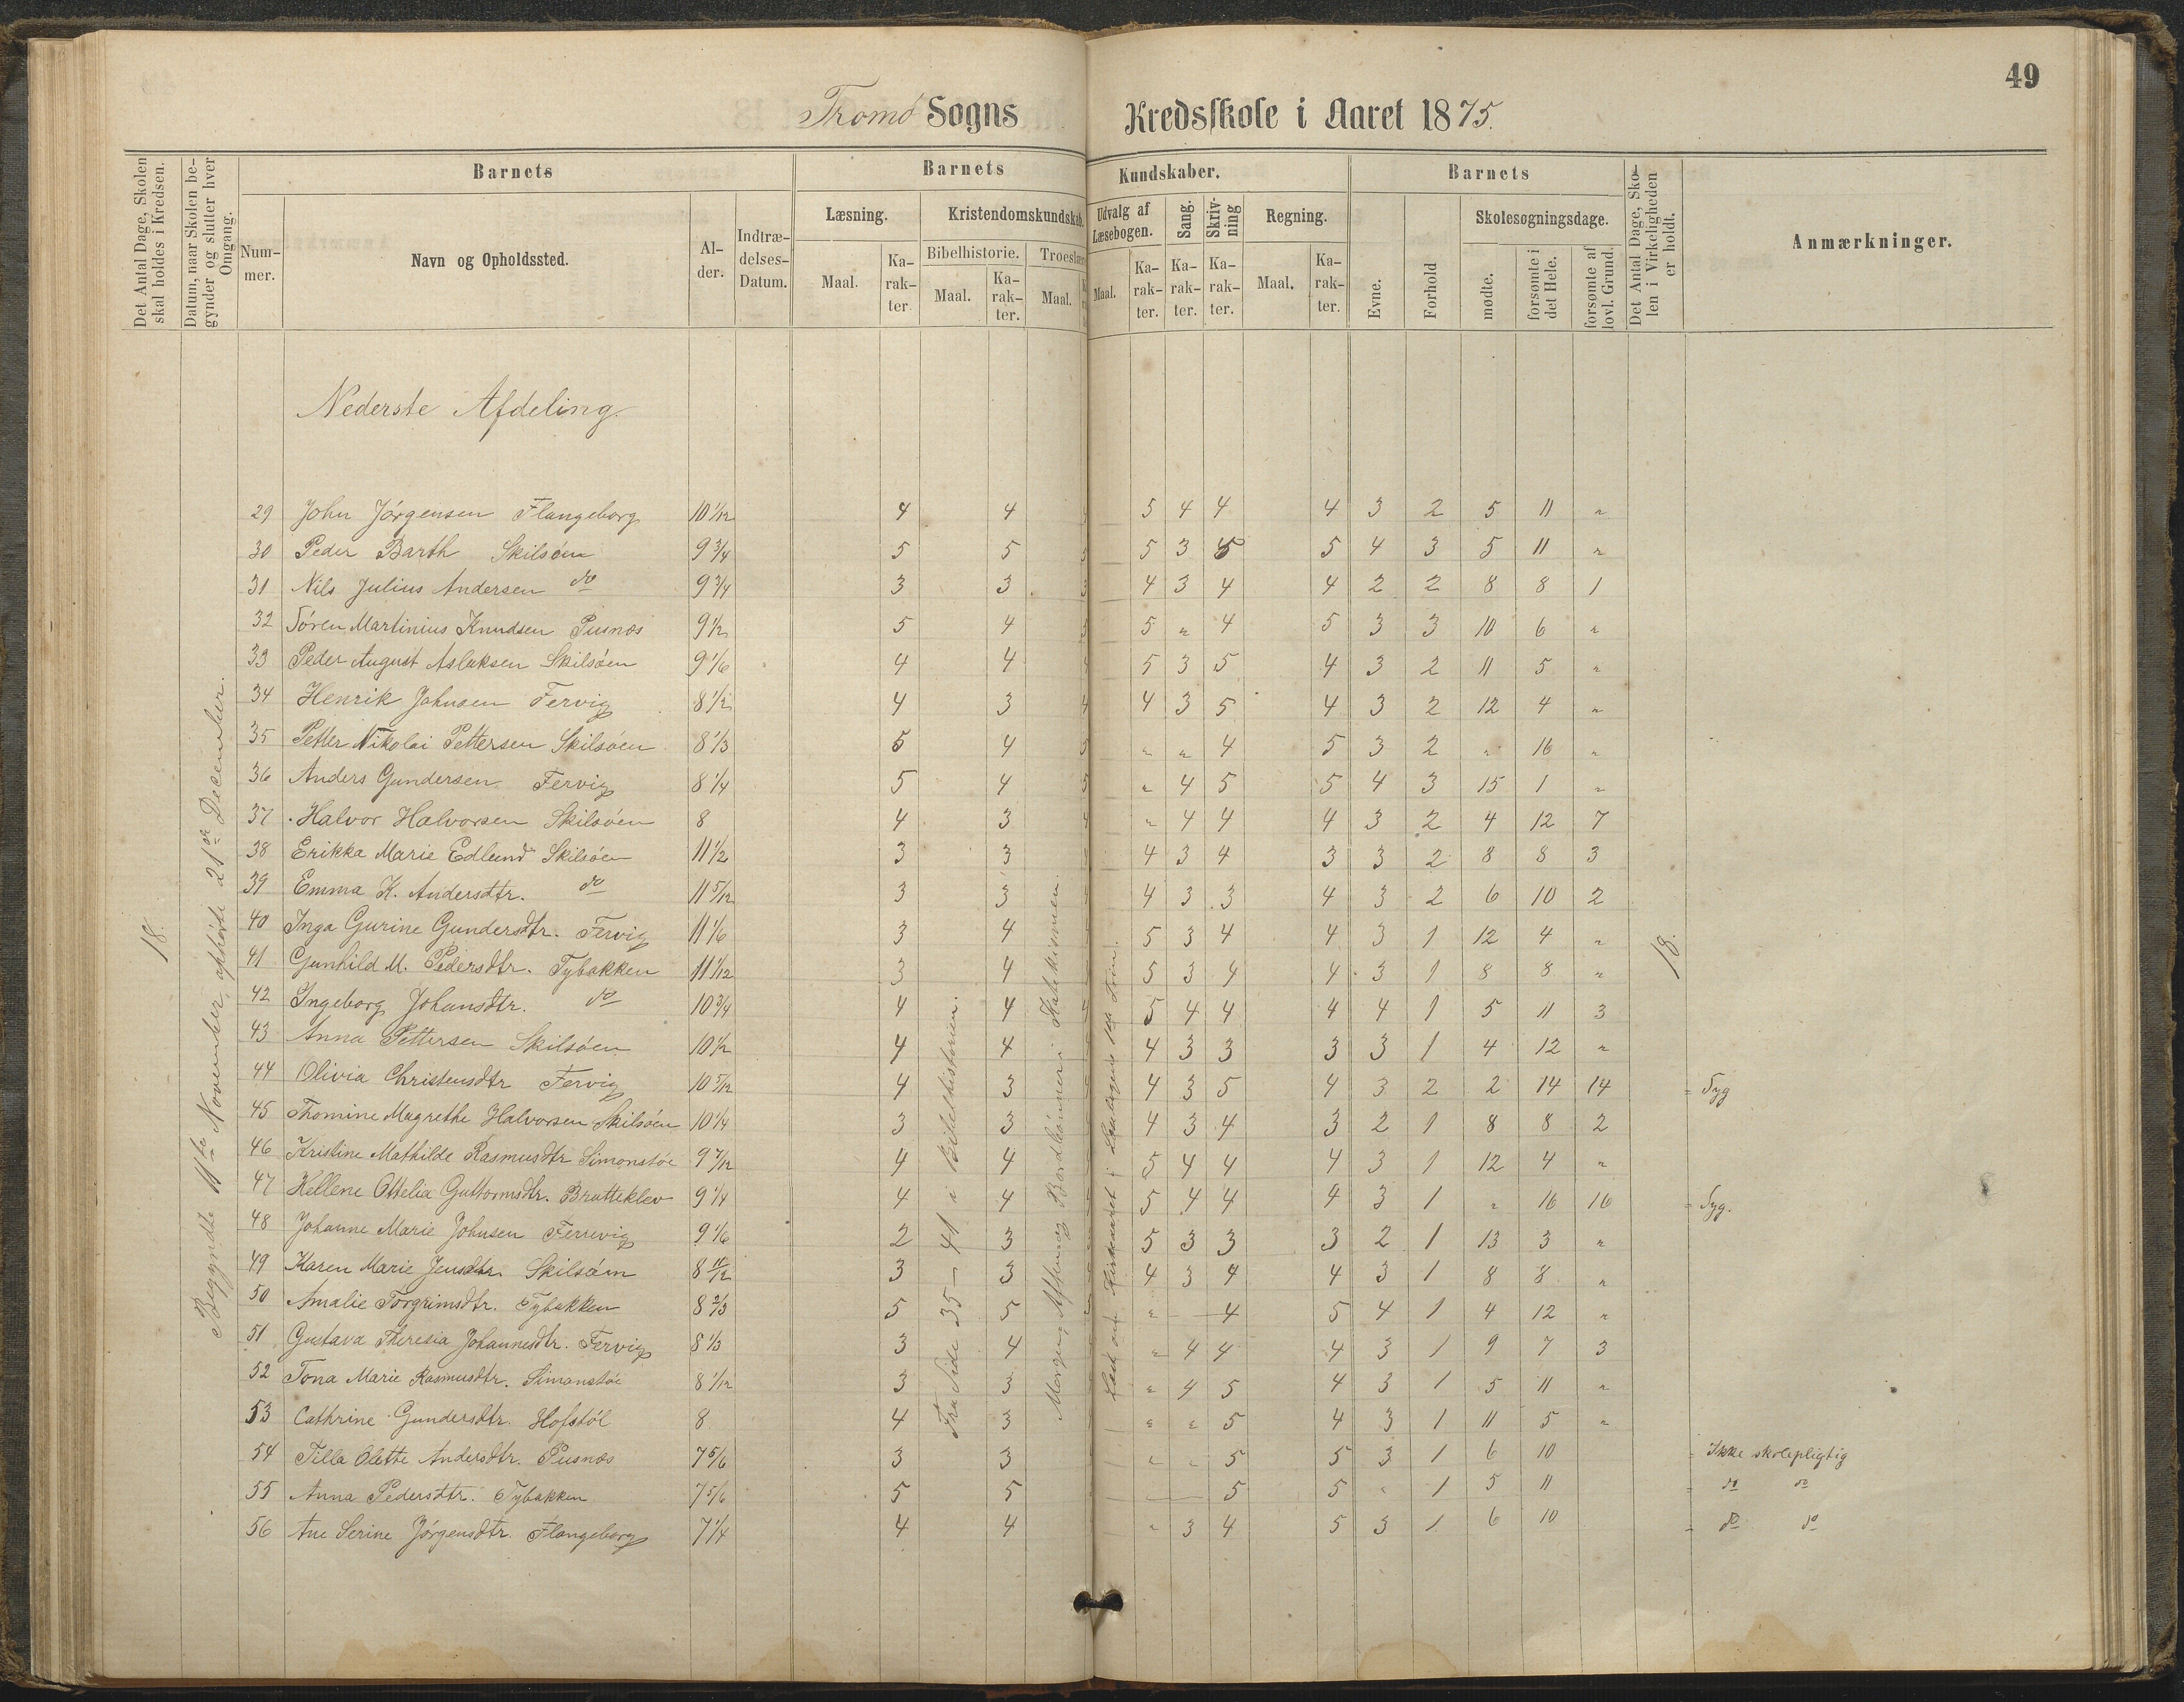 49
Tromø Sogns Kredsskole i Aaret 1875.
Det Antal Dage, Skolen skal holdes i Kredsen.
Datum, naar Skolen begynder og slutter hver Omgang.
Barnets
Nummer.
Navn og Opholdssted.
Alder.
Indtrædelses-Datum.
Barnets Kundskaber.
Læsning.
Maal.
Karakter.
Kristendomskundskab.
Bibelhistorie.
Maal.
Karakter.
Troeslære
Maal.
Udvalg af Læsebogen.
Maal.
Karakter.
Sang.
Karakter.
Skrivning
Karakter.
Regning.
Maal.
Karakter.
Barnets
Evne.
Forhold
Skolesøgningsdage.
mødte.
forsømte i det Hele.
forsømte af lovl. Grund.
Det Antal Dage, Skolen i Virkeligheden er holdt.
Anmærkninger.
Nederste Afdeling.
18.
Begyndte 11te November, ophørte 21de December.
Fra Side 35 – 41 i Bibelhistorien.
18.
29 John Jørgensen Flangeborg 10 1/12 4 4 5 4 4 4 3 2 5 11 "
30 Peder Barth Skilsøen 9 3/4 5 5 5 3 5 5 4 3 5 11 "
31 Nils Julius Andersen do 9 3/4 3 3 3 4 3 4 4 2 2 8 8 1
32 Søren Martinius Knudsen Pusnæs 9 1/2 5 4 5 " 4 5 3 3 10 6 "
33 Peder August Aslaksen Skilsøen 9 1/6 4 4 5 3 5 4 3 2 11 5 "
34 Henrik Johnsen Fervig 8 1/2 4 3 4 4 3 5 4 3 2 12 4 "
35 Petter Nikolai Pettersen Skilsøen 8 1/3 5 4 " " 4 5 3 2 " 16 "
36 Anders Gundersen Fervig 8 1/4 5 4 5 " 4 5 5 4 3 15 1 "
37 Halvor Halvorsen Skilsøen 8 4 3 4 " 4 4 4 3 2 4 12 7
38 Erikka Marie Edlund Skilsøen 11 1/2 3 3 4 3 4 3 3 2 8 8 3
39 Emma K. Andersdtr. do 11 5/12 3 3 4 3 3 4 3 2 6 10 2
40 Inga Gurine Gundersdtr. Fervig 11 1/6 3 4 5 3 4 4 3 1 12 4 "
41 Gunhild M. Pedersdtr. Tybakken 11 1/12 3 4 5 3 4 4 3 1 8 8 "
42 Ingeborg Johansdtr. do 10 3/4 4 4 4 5 4 4 4 4 1 5 11 3
43 Anna Pettersen Skilsøen 10 1/2 4 4 4 3 3 3 3 1 4 12 "
44 Olivia Christensdtr Fervig 10 5/12 4 3 4 3 5 4 3 2 2 14 14 = Syg
45 Thomine Magrethe Halvorsen Skilsøen 10 1/4 3 3 4 3 4 3 2 1 8 8 2
46 Kristine Mathilde Rasmusdtr Simonstøe 9 7/12 4 4 5 4 4 4 3 1 12 4 "
47 Hellene Ottelia Guttormsdtr. Bratteklev 9 1/4 4 4 5 4 4 4 3 1 " 16 16 = Syg.
48 Johanne Marie Johnsen Ferrevig 9 1/6 2 3 5 3 3 3 2 1 13 3 "
49 Karen Marie Jensdtr. Skilsøen 8 11/12 3 3 4 3 4 4 3 1 8 8 "
50 Amalie Torgrimsdtr. Tybakken 8 2/3 5 5 " — 4 5 4 1 4 12 "
51 Gustava Theresia Johannesdtr. Fervig 8 1/3 3 4 " 4 4 4 3 1 9 7 3
52 Tona Marie Rasmusdtr. Simonstøe 8 1/12 3 3 " 4 5 4 3 1 5 11 "
53 Cathrine Gundersdtr. Hofstøl 8 4 3 " " 5 4 3 1 11 5 "
54 Tilla Olette Andersdtr. Pusnæs 7 5/6 3 3 " " 5 5 3 1 6 10 = Ikke skolepligtig
55 Anna Pedersdtr. Tybakken 7 5/6 5 5 — 5 5 " 1 5 11 = do do
56 Ane Serine Jørgensdtr. Flangeborg 7 1/4 4 4 " 3 4 5 3 1 6 10 = do do